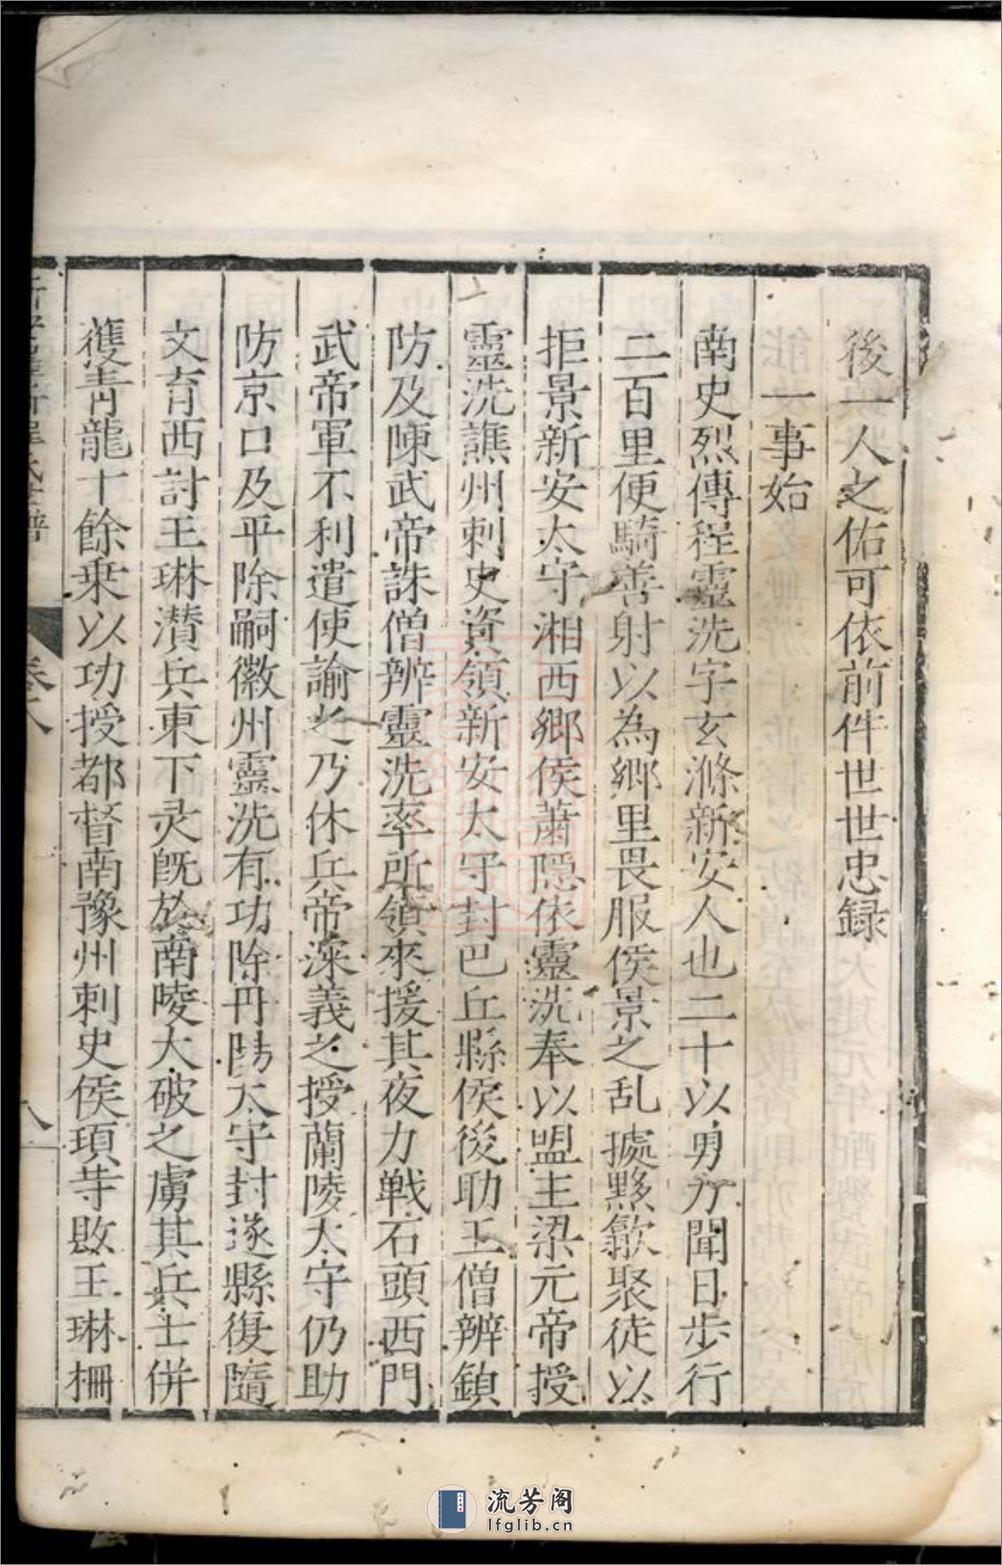 後一人之佑可依前件世世忠録
一事始
南史烈傳程靈洗字玄滌新安人也二十以勇力聞日步行
二百里便騎善射以為鄉里畏服侯景之乱據黟歙聚徒以
拒景新安太守湘西鄉侯蕭隠依靈洗奉以盟主梁元帝授
靈洗譙州刺史資領新安太守封巴丘縣侯後助王僧辨鎮
防及陳武帝誅僧辨靈洗率所領來援其夜力戦石頭西門
武帝軍不利遣使諭之乃休兵帝深義之授蘭陵太守仍助
防京口及平除嗣徽州靈洗有功除丹陽太守封遂縣復隨
文育西討王琳潜兵東下灵旣於南陵大破之虜其兵士併
獲青龍十餘乗以功授都督南豫州刺史侯項寺敗王琳柵
卷八
八
流芳阁
lfglib.cn